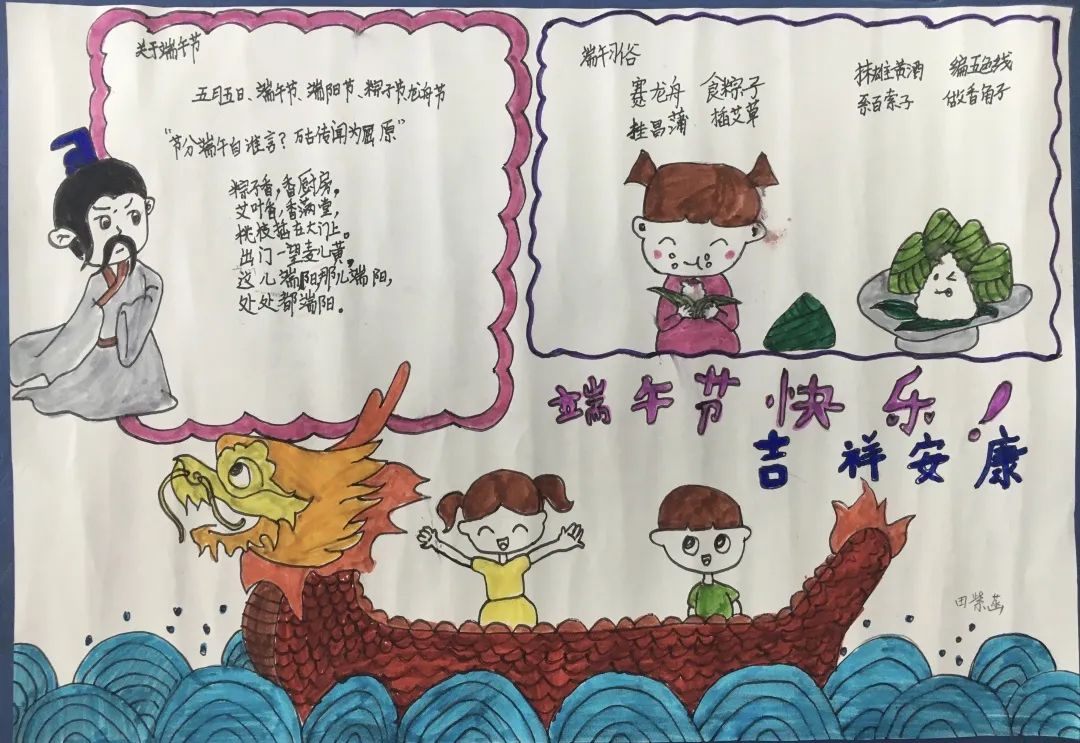 关于端午节
五月五日、端午节、端阳节、粽子节龙舟节
“节分端午自谁言？万古传闻为屈原”
粽子香，香厨房，
艾叶香，香满堂，
桃枝插在大门上。
出门一望麦儿黄，
这儿端阳那儿端阳，
处处都端阳。
端午习俗
赛龙舟 食粽子
挂昌蒲 插艾草
抹雄黄酒 编五色线
系百索子 做香角子
端午节快乐！
吉祥安康
田紫